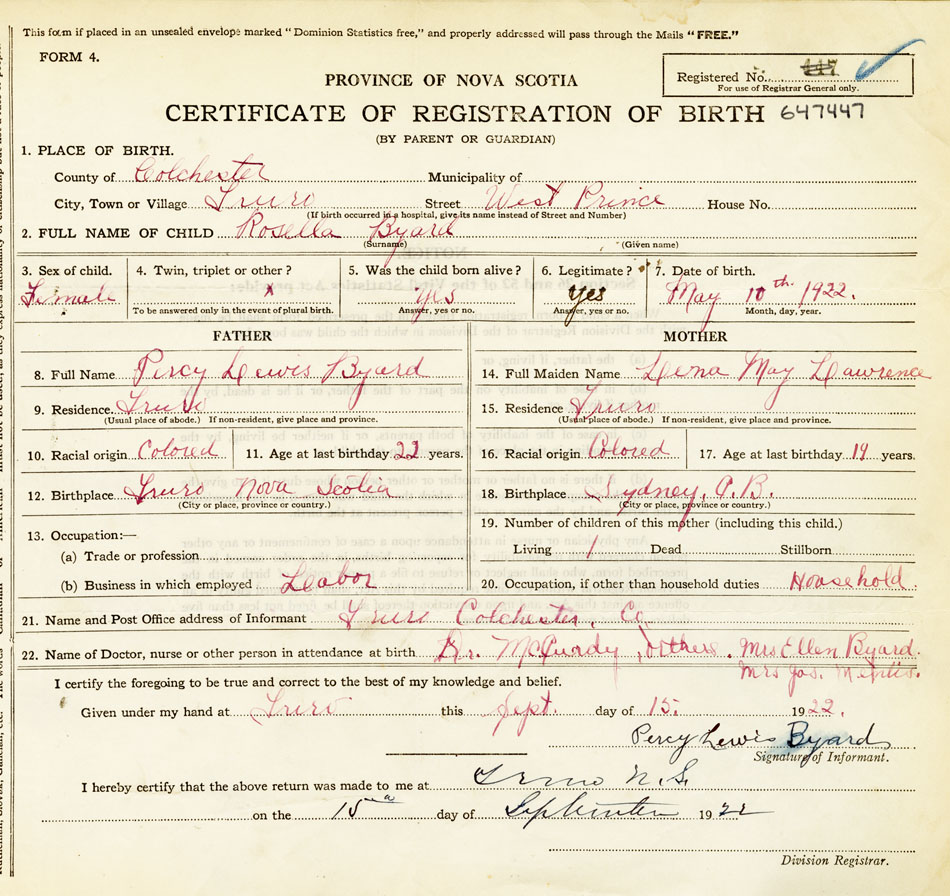 This form if placed in an unsealed envelope marked "Dominion Statistics free," and properly addressed will pass through the Mails "FREE."
FORM 4.
Registered No.
For use of Registrar General only.
PROVINCE OF NOVA SCOTIA
CERTIFICATE OF REGISTRATION OF BIRTH 647447
(BY PARENT OR GUARDIAN)
1. PLACE OF BIRTH.
County of Colchester Municipality of
City, Town or Village Truro Street West Prince House No.
(If birth occurred in a hospital, give its name instead of Street and Number)
2. FULL NAME OF CHILD Rosella Byard
(Surname) (Given name)
3. Sex of child. 4. Twin, triplet or other? 5. Was the child born alive? 6. Legitimate? 7. Date of birth.
Female x yes yes May 10th 1922.
To be answered only in the event of plural birth. Answer, yes or no. Answer, yes or no. Month, day, year.
FATHER MOTHER
8. Full Name Percy Lewis Byard 14. Full Maiden Name Lena May Lawrence
9. Residence. Truro 15. Residence Truro
(Usual place of abode.) If non-resident, give place and province. (Usual place of abode.) If non-resident, give place and province.
10. Racial origin Colored 11. Age at last birthday 22 years. 16. Racial origin Colored 17. Age at last birthday 19 years.
12. Birthplace Truro Nova Scotia 18. Birthplace Sydney, C.B.
(City or place, province or country.) (City or place, province or country.)
19. Number of children of this mother (including this child.)
13. Occupation:—
Living 1 Dead Stillborn
(a) Trade or profession
(b) Business in which employed Labor 20. Occupation, if other than household duties Household.
21. Name and Post Office address of Informant Truro Colchester, Co.
22. Name of Doctor, nurse or other person in attendance at birth Dr. McCurdy, others. Mrs Ellen Byard.
Mrs Jas. Mentis.
I certify the foregoing to be true and correct to the best of my knowledge and belief.
Given under my hand at Truro this Sept. day of 15. 1922.
Percy Lewis Byard
Signature of Informant.
I hereby certify that the above return was made to me at Truro N.S.
on the 15th day of September 1922
Division Registrar.